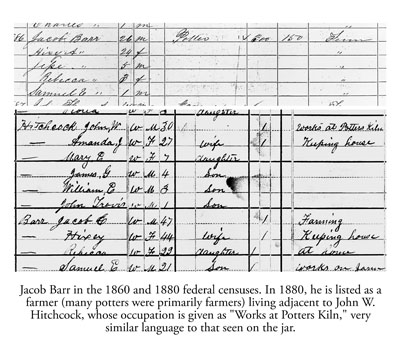 Charles " 1 m
66 Jacob Barr 26 m Potter $ 800 150 Tenn
Hixey A " 24 f "
Jefse " 5 m "
Rebecca " 3 f "
Samuel E " 1 m "
daughter
Hitchcock John, W W M 30 1 works at Potters Kiln
— Amanda, J W F 27 wife 1 Keeping house
— Mary E W F 7 daughter
— James, G W M 4 Son
— William, E W M 3 Son
— John Trovis W M Son
Barr Jacob C W M 47 1 Farming
— Hixey W F 44 wife 1 Keeping house
— Rebecca W F 22 daughter 1 at home
— Samuel E W M 21 Son 1 works on farm
Jacob Barr in the 1860 and 1880 federal censuses. In 1880, he is listed as a
farmer (many potters were primarily farmers) living adjacent to John W.
Hitchcock, whose occupation is given as "Works at Potters Kiln," very
similar language to that seen on the jar.